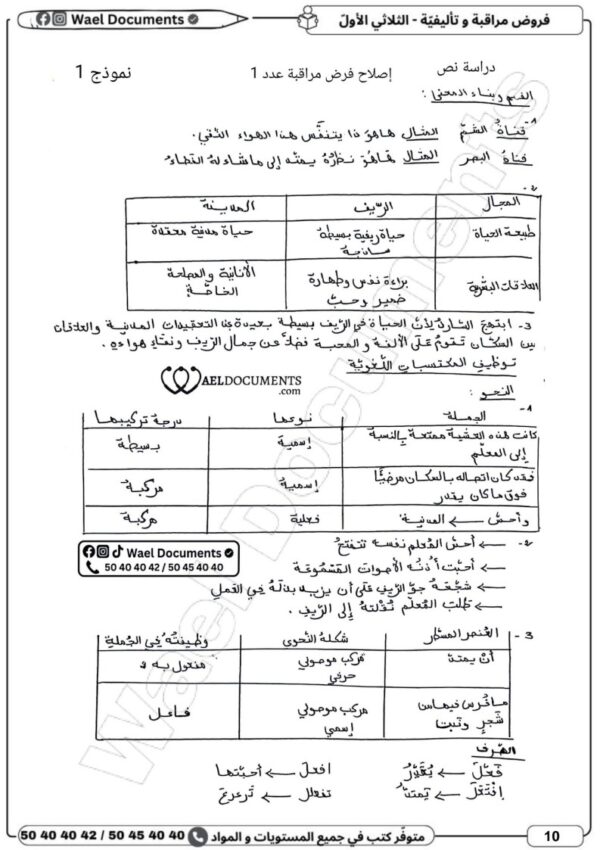 فروض مراقبة و تأليفيّة - الثلاثي الأولّ
Wael Documents
دراسة نص
إصلاح فرض مراقبة عدد 1
نموذج 1
الفهم وبناء المعنى :
1- قناةُ الشمّ المثال هاهو ذا يتنفّس هذا الهواء النقي.
قناةُ البصر المثال هاهو نظرُهُ يمتدّ إلى ما شاء له الفضاءُ
2-
المجال الرّيف المدينة
طبيعة الحياة حياة ريفية بسيطة ساذجة حياة مدنية معقدة
العلاقات البشرية براءة نفس وطهارة ضمير وحبّ الأنانية والمصلحة الخاصّة
3- ابتهج السّارد لأنّ الحياة في الرّيف بسيطة بعيدة عن التعقيدات المدنية والعلاقات
بين السكّان تقومُ على الألفة والمحبة فضلا عن جمال الرّيف ونقاء هواءه.
توظيف المكتسبات اللّغويّة
WAELDOCUMENTS
.com
النحو :
1-
الجملة نوعها درجة تركيبها
كانت هذه العشية ممتعة بالنسبة إلى المعلّم إسمية بسيطة
فقد كان اتصاله بالسكان مرضيًّا فوق ما كان يقدر إسمية مركبة
وأحسّ ← المدنية فعلية مركبة
Wael Documents
50 40 40 42 / 50 45 40 40
2- ← أحسّ المُعلم نفسه تتفتحُ
← أحبّت أذنُه الأصوات المَسْمُوعَة
← شجّعَهُ جوّ الرّيف على أن يزيد بذله في العمل
← طلب المُعلّم نُقْلتهُ إلى الرّيف.
3-
العُنصر المسطّر شكلهُ النّحوي وظيفتُه في الجملة
أنْ يمتدّ مركب موصولي حرفي مفعول به
ما غُرس فيها من شجرٍ ونبت مركب موصولي إسمي فاعل
الصّرف
فَعَّلَ ← يُقَلِّلُ افعل ← أحبّتها
اِفْتَعَلَ ← يَمْتَدُّ تفعلل ← ترعرع
Wael Documents
متوفّر كتب في جميع المستويات و المواد 50 40 40 42 / 50 45 40 40
10